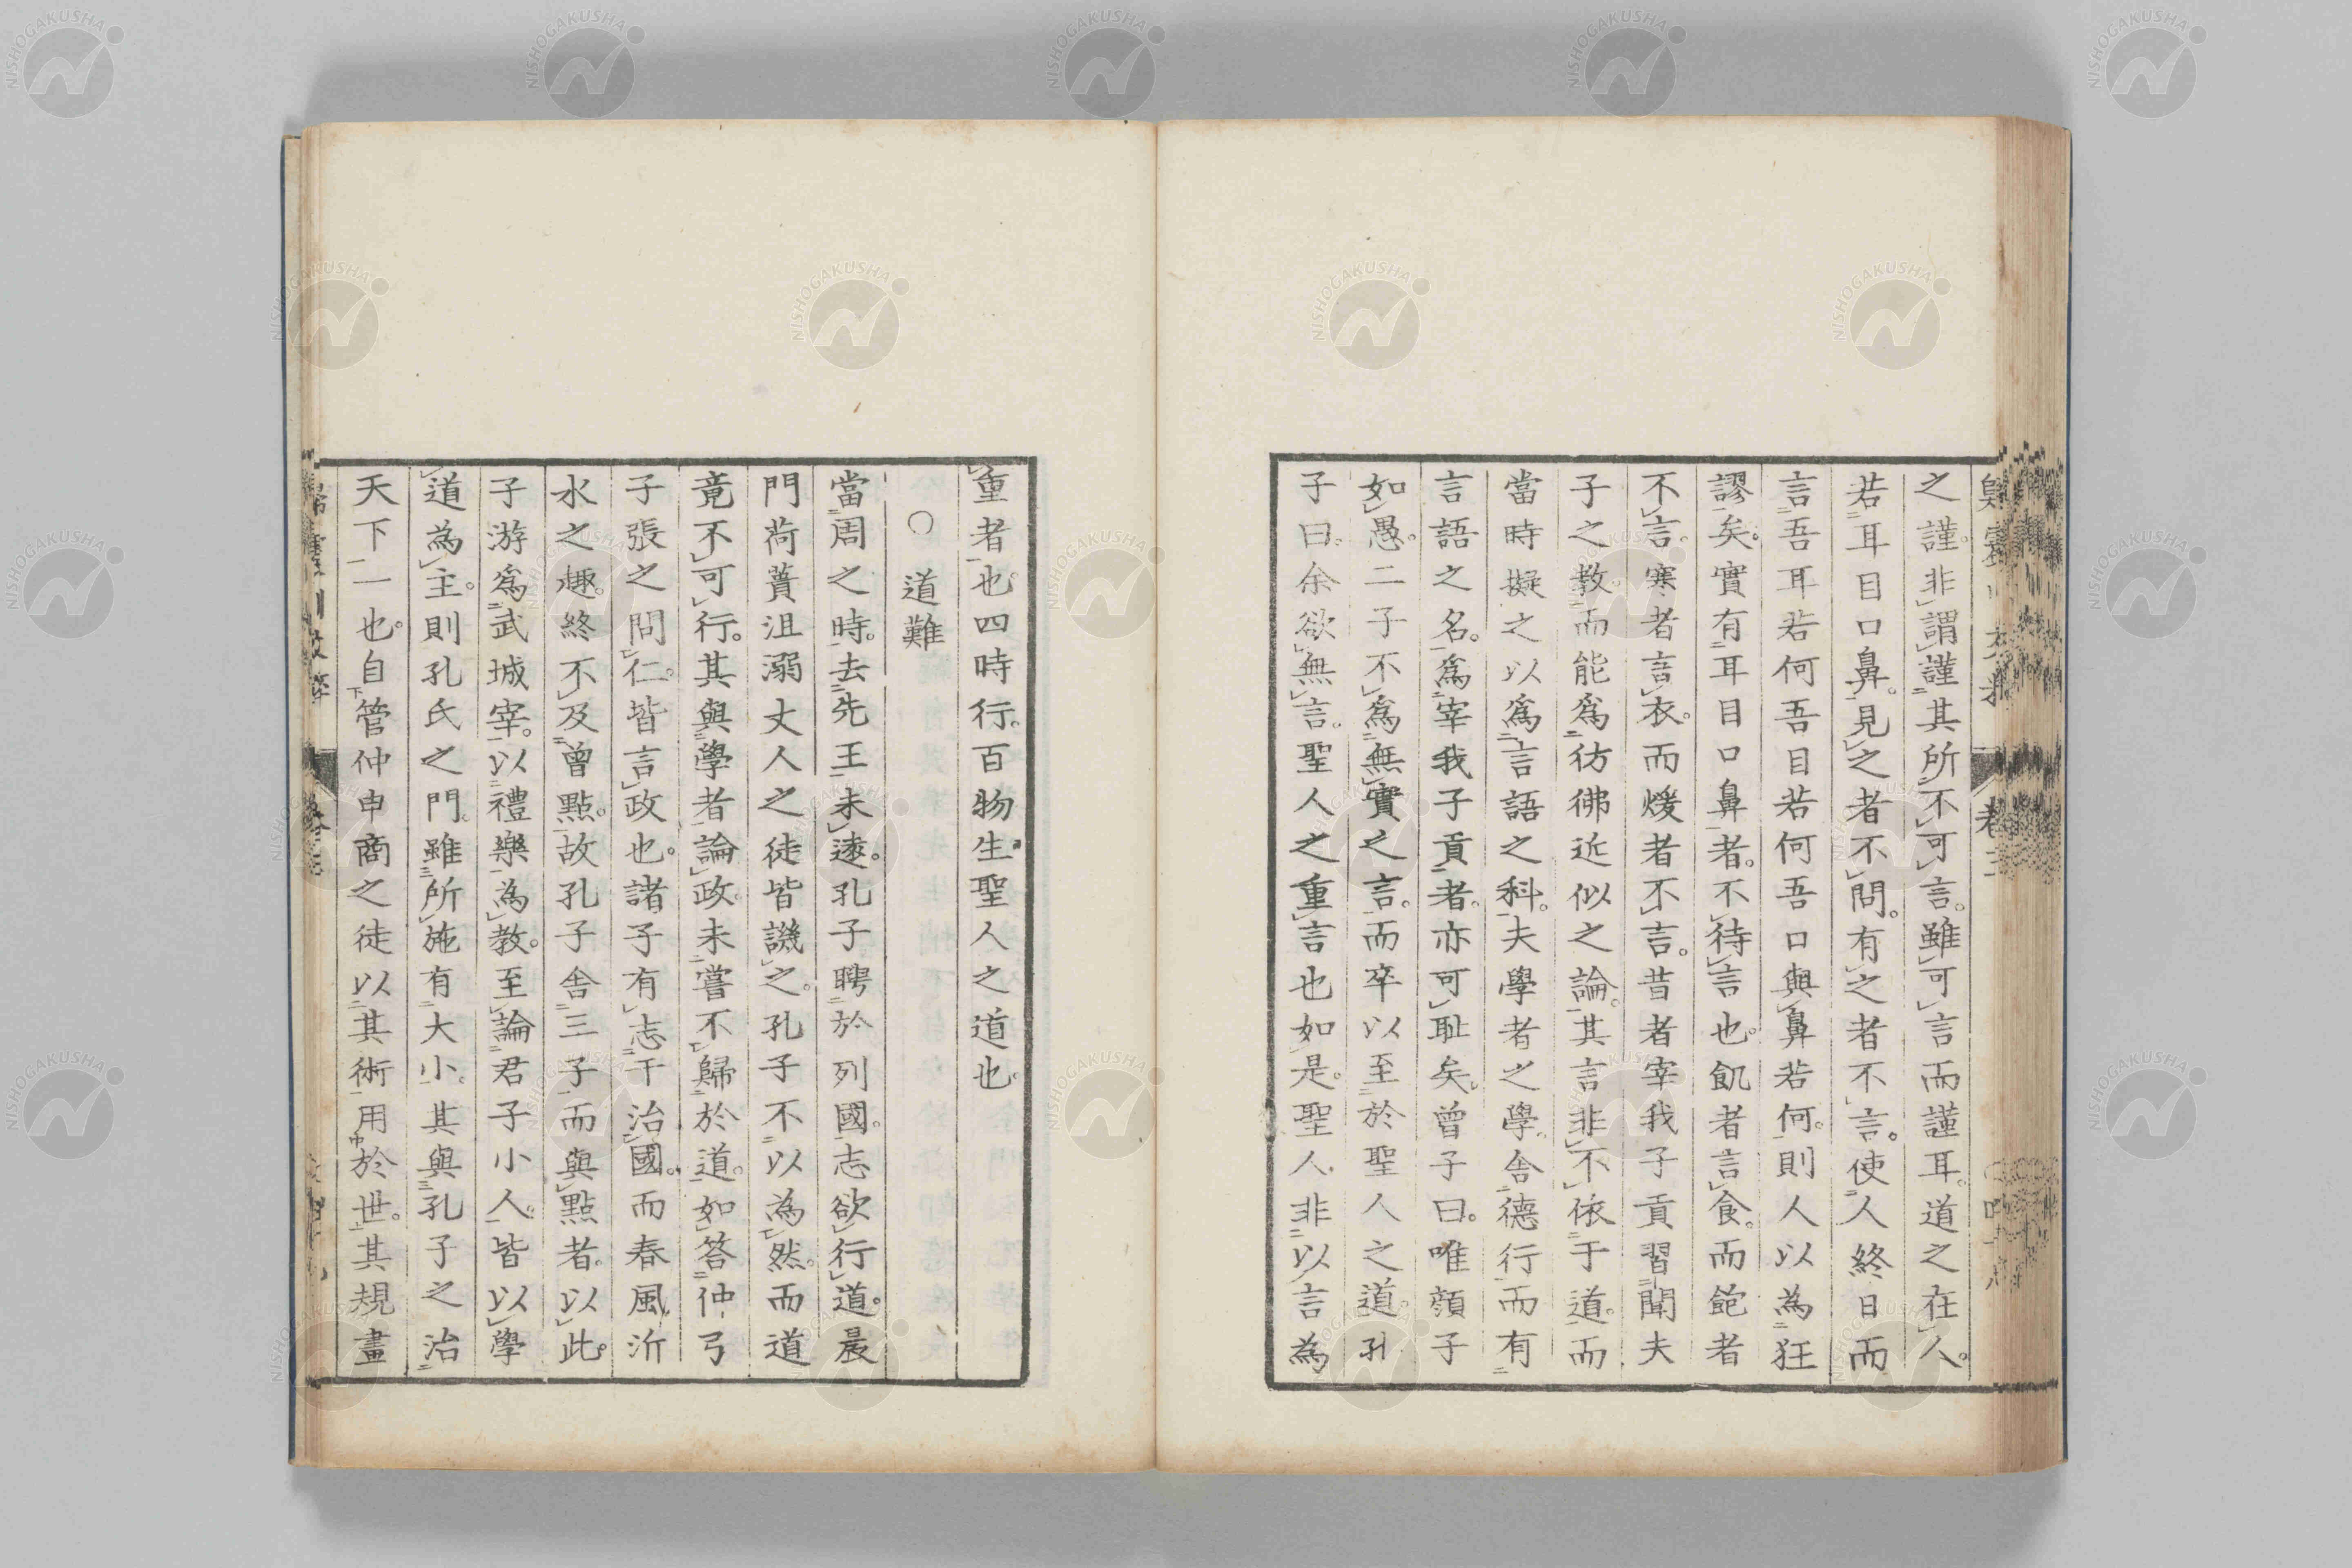 之謹。非謂謹其所不可言。雖可言而謹耳。道之在人。
若耳目口鼻。見之者不問。有之者不言。使人終日而
言吾耳若何吾目若何吾口與鼻若何。則人以為狂
謬矣。實有耳目口鼻者。不待言也。飢者言食。而飽者
不言。寒者言衣。而煖者不言。昔者宰我子貢習聞夫
子之教而能為彷彿近似之論。其言非不依于道。而
當時擬之以為言語之科。夫學者之學。舍德行而有
言語之名。為宰我子貢者。亦可耻矣。曾子曰。唯顔子
如愚。二子不為無實之言。而卒以至於聖人之道。孔
子曰。余欲無言。聖人之重言也如是。聖人非以言為
重者也。四時行。百物生。聖人之道也。
○道難
當周之時。去先王未遠。孔子聘於列國。志欲行道。晨
門荷蕢沮溺丈人之徒皆譏之。孔子不以為然。而道
竟不可行。其與學者論政。未嘗不歸於道。如答仲弓
子張之問仁。皆言政也。諸子有志于治國。而春風沂
水之趣。終不及曾點。故孔子舍三子而與點者。以此。
子游為武城宰。以禮樂為教。至論君子小人。皆以學
道為主。則孔氏之門。雖所施有大小。其與孔子之治
天下一也。自管仲申商之徒以其術用於世。其規畫